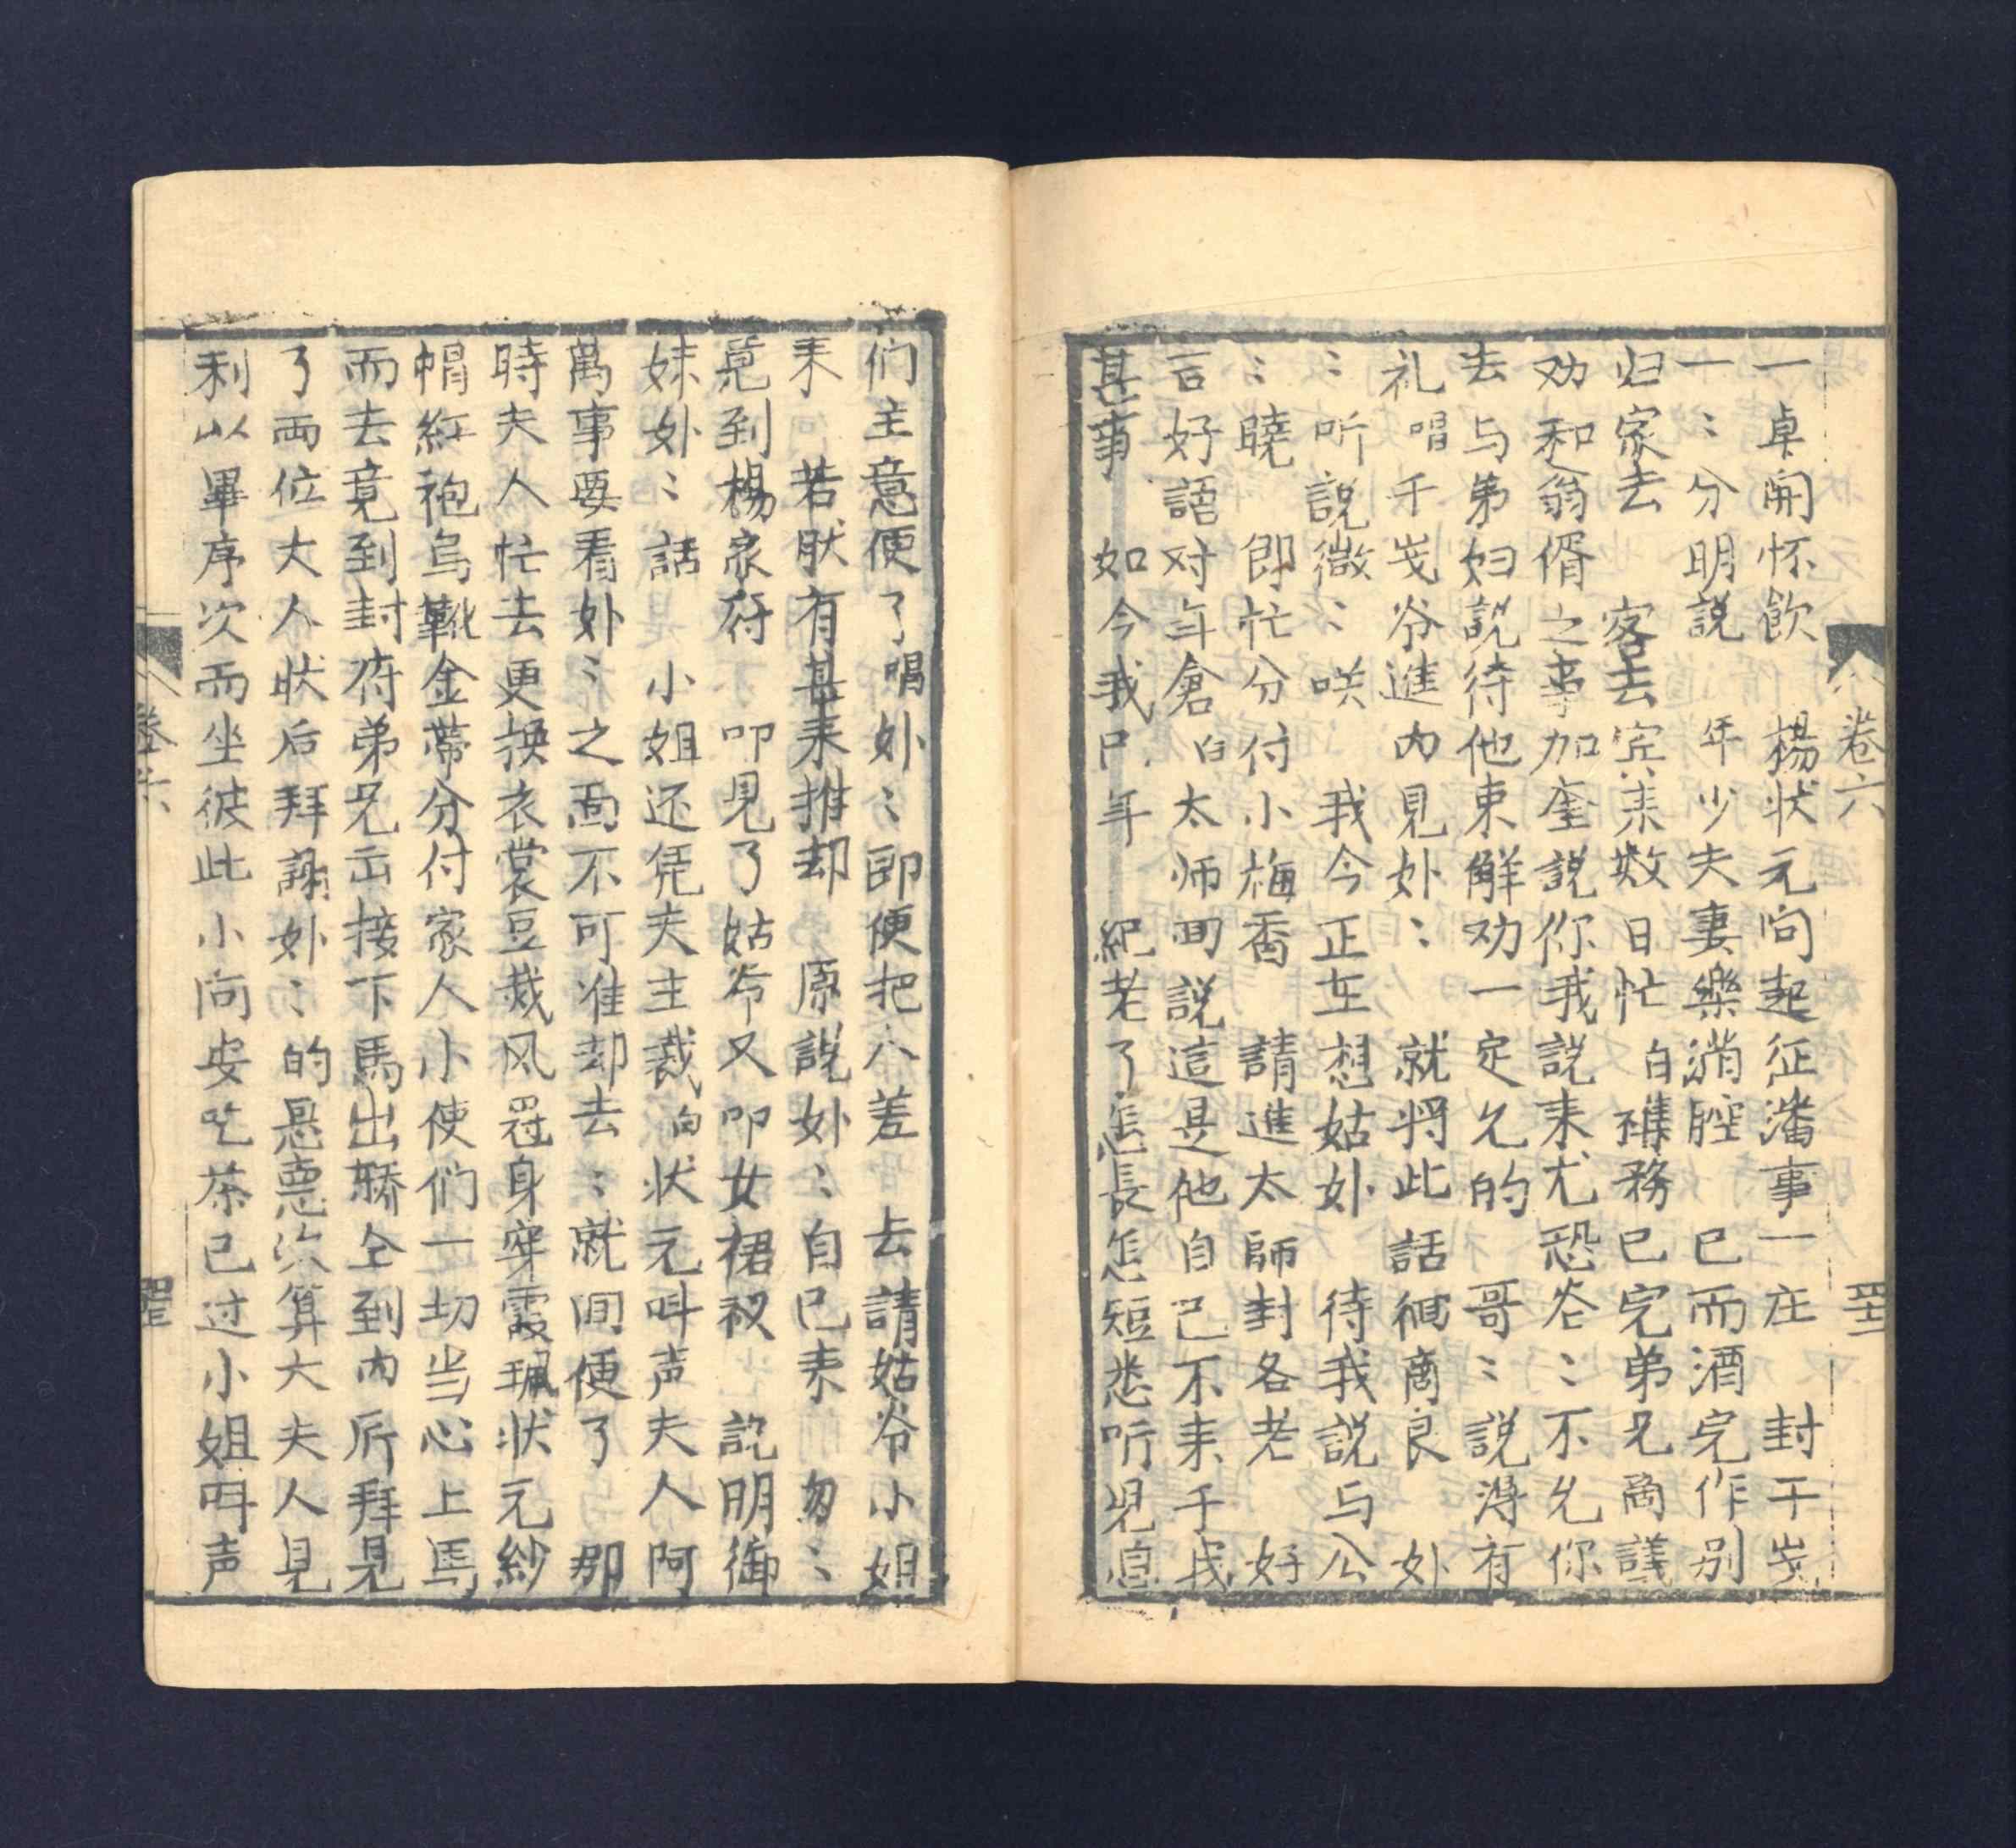 卷六
一卓開怀飲　楊状元向起征潘事一庄　封干岁
一〻分明説　年少夫妻樂満腔　已而酒完作别
归家去　客去宾来数日忙　白雜務已完弟兄商議
劝和翁偦之事加奎説你我説来尤恐爷〻不允你
去与弟妇説待他東解劝一定允的　哥〻説得有
礼唱千岁爷進内見奶〻　就将此話徊商良　奶
〻听説微〻咲　我今正在想姑奶　待我説与公
〻曉　即忙分付小梅香　請進太師封各老　好
言好語对年倉白太师回説這是他自己不来于我
甚事　如今我年紀老了怎長怎短悉听児
们主意便了唱奶〻即便把人差　去請姑爷小姐
来　若肰有甚来推却　原説奶〻自已来　勿〻
竟到楊家府　叩見了姑爷又叩女裙衩　説明御
妹奶〻話　小姐还凭夫主裁白状元呌声夫人阿
萬事要看奶〻之面不可准却去〻就间便了　那
時夫人忙去更换衣裳豆裁风冠身穿霞珮状元紗
帽紅袍烏靴金帶分付家人小使们一切当心上馬
而去竟到封府弟兄出接下馬出轎仝到内所拜見
了両位大人状后拜謝奶〻的恩惠次算大夫人見
利以畢序次而坐彼此小向安吃茶已过小姐呌声
卷六